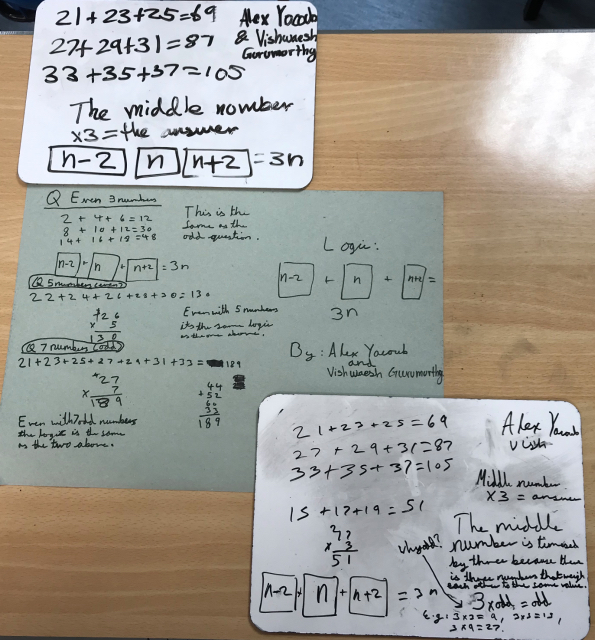 21+23+25=69
27+29+31=87
33+35+37=105
Alex Yacoub
& Vishwaesh
Gurumorthy
The middle number
x3=the answer
n-2 n n+2 =3n
Q Even 3 numbers
2 + 4 + 6 = 12
8 + 10 + 12 = 30
14 + 16 + 18 = 48
This is the
same as the
odd question.
n-2 + n + n+2 = 3n
Q 5 numbers (even)
22+24+26+28+30=130
26
x 5
130
Even with 5 numbers
its the same logic
as the one above.
Q 7 numbers (odd)
21+23+25+27+29+31+33= 189
27
x 7
189
44
+52
60
33
189
Even with 7 odd numbers
the logic is the same
as the two above.
Logic:
n-2 + n + n+2 =
3n
By: Alex Yacoub
and
Vishwaesh Gurumorthy
21+23+25=69
27+29+31=87
33+35+37=105
Alex Yacoub
Vish
15+17+19=51
x 3
51
Middle number
x3 = answer
The middle
number is timesed
by three because there
is three numbers that weigh
each other to the same value.
why odd?
3xodd=odd
E.g: 3x3=9,
3x9=27.
n-2 + n + n+2 = 3n